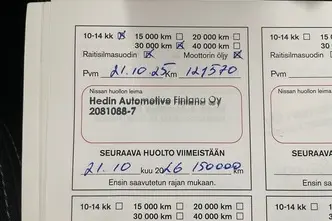 10-14 kk ☒ 15 000 km ☐ 20 000 km ☐
30 000 km ☒ 40 000 km ☐
Raitisilmasuodin ☐ Moottorin öljy ☒
Pvm 21.10.25 Km 121570
Nissan huollon leima
Hedin Automotive Finland Oy
2081088-7
SEURAAVA HUOLTO VIIMEISTÄÄN
21.10 kuu 2026 150000 km
Ensin saavutetun rajan mukaan.
10-14 kk ☐ 15 000 km ☐ 20 000 km ☐
30 000 km ☐ 40 000 km ☐
10-14